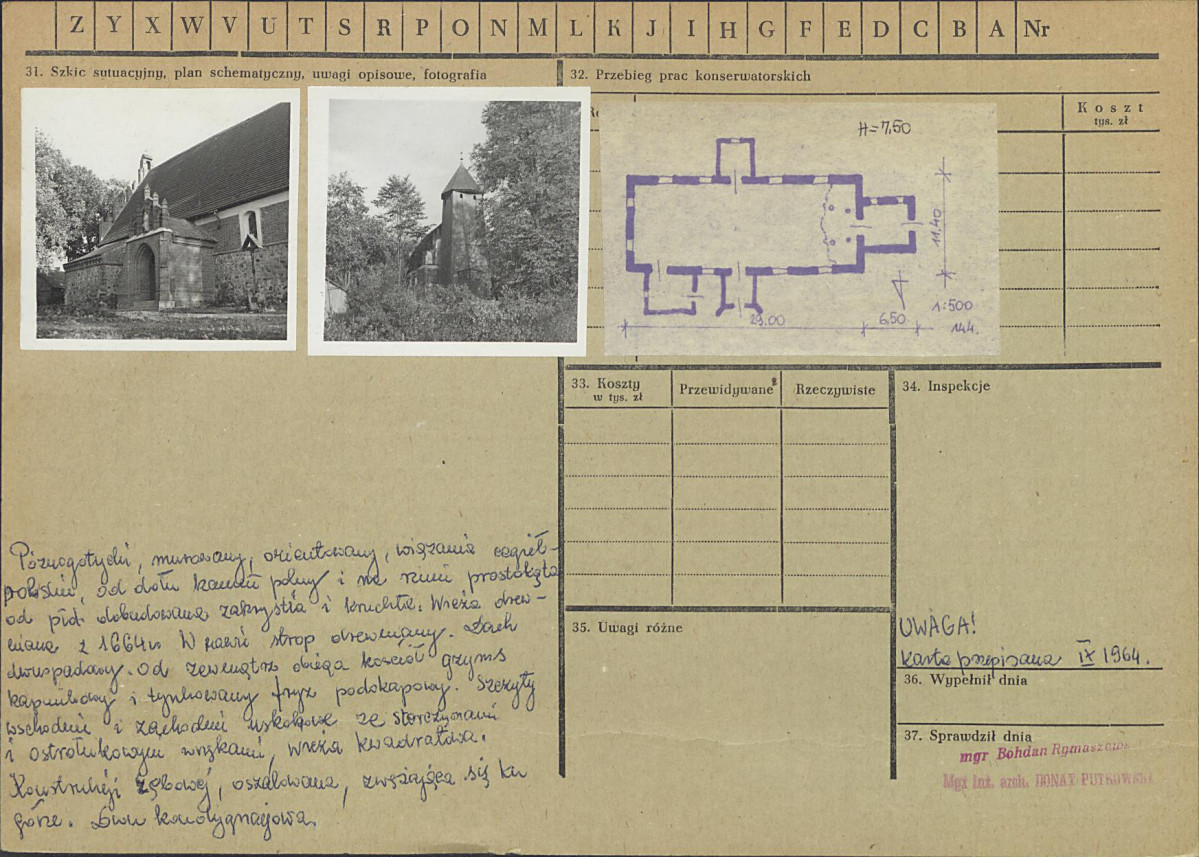 Z Y X W V U T S R P O N M L K J I H G F E D C B A Nr
31. Szkic sytuacyjny, plan schematyczny, uwagi opisowe, fotografia
32. Przebieg prac konserwatorskich
Koszt
tys. zł
H=7,50
11,40
29.00
6,50
1:500
144.
33. Koszty
w tys. zł
Przewidywane
Rzeczywiste
34. Inspekcje
Późnogotycki, murowany, orientowany, wiązanie cegieł
polskie, od dołu kamień polny i na rzucie prostokąta
od płd. dobudowana zakrystia i kruchta. Wieża drew-
niana z 1664 w nawie strop drewniany. Dach
dwuspadowy. Od zewnątrz obiega kościół gzyms
kapnikowy i tynkowany fryz podokapowy. Szczyty
wschodni i zachodni uskokowe ze sterczynami
i ostrołukowymi wnękami, wieża kwadratowa.
Konstrukcji zrębowej, oszalowana, zwężająca się ku
górze. Dwukondygnacjowa.
35. Uwagi różne
UWAGA!
Karta przepisana IX 1964.
36. Wypełnił dnia
37. Sprawdził dnia
mgr Bohdan Rymaszewski
Mgr inż. arch. DONAT PUTKOWSKI